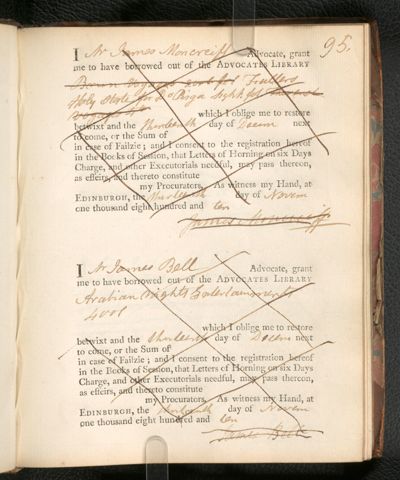 95.
I Mr James Moncreiff Advocate, grant
me to have borrowed out of the ADVOCATES LIBRARY
Fullers
Holy State for
which I oblige me to restore
betwixt and the thirteenth day of Decem next
to come, or the Sum of
in case of Failzie; and I consent to the registration hereof
in the Books of Session, that Letters of Horning on six Days
Charge, and other Executorials needful, may pass thereon,
as effeirs, and thereto constitute
my Procurators. As witness my Hand, at
EDINBURGH, the thirteenth day of Novem
one thousand eight hundred and ten
James Moncreiff
I Mr James Bell Advocate, grant
me to have borrowed out of the ADVOCATES LIBRARY
Arabian Nights Entertainments
4 vols
which I oblige me to restore
betwixt and the thirteenth day of Decem next
to come, or the Sum of
in case of Failzie; and I consent to the registration hereof
in the Books of Session, that Letters of Horning on six Days
Charge, and other Executorials needful, may pass thereon,
as effeirs, and thereto constitute
my Procurators. As witness my Hand, at
EDINBURGH, the thirteenth day of Novem
one thousand eight hundred and ten
James Bell